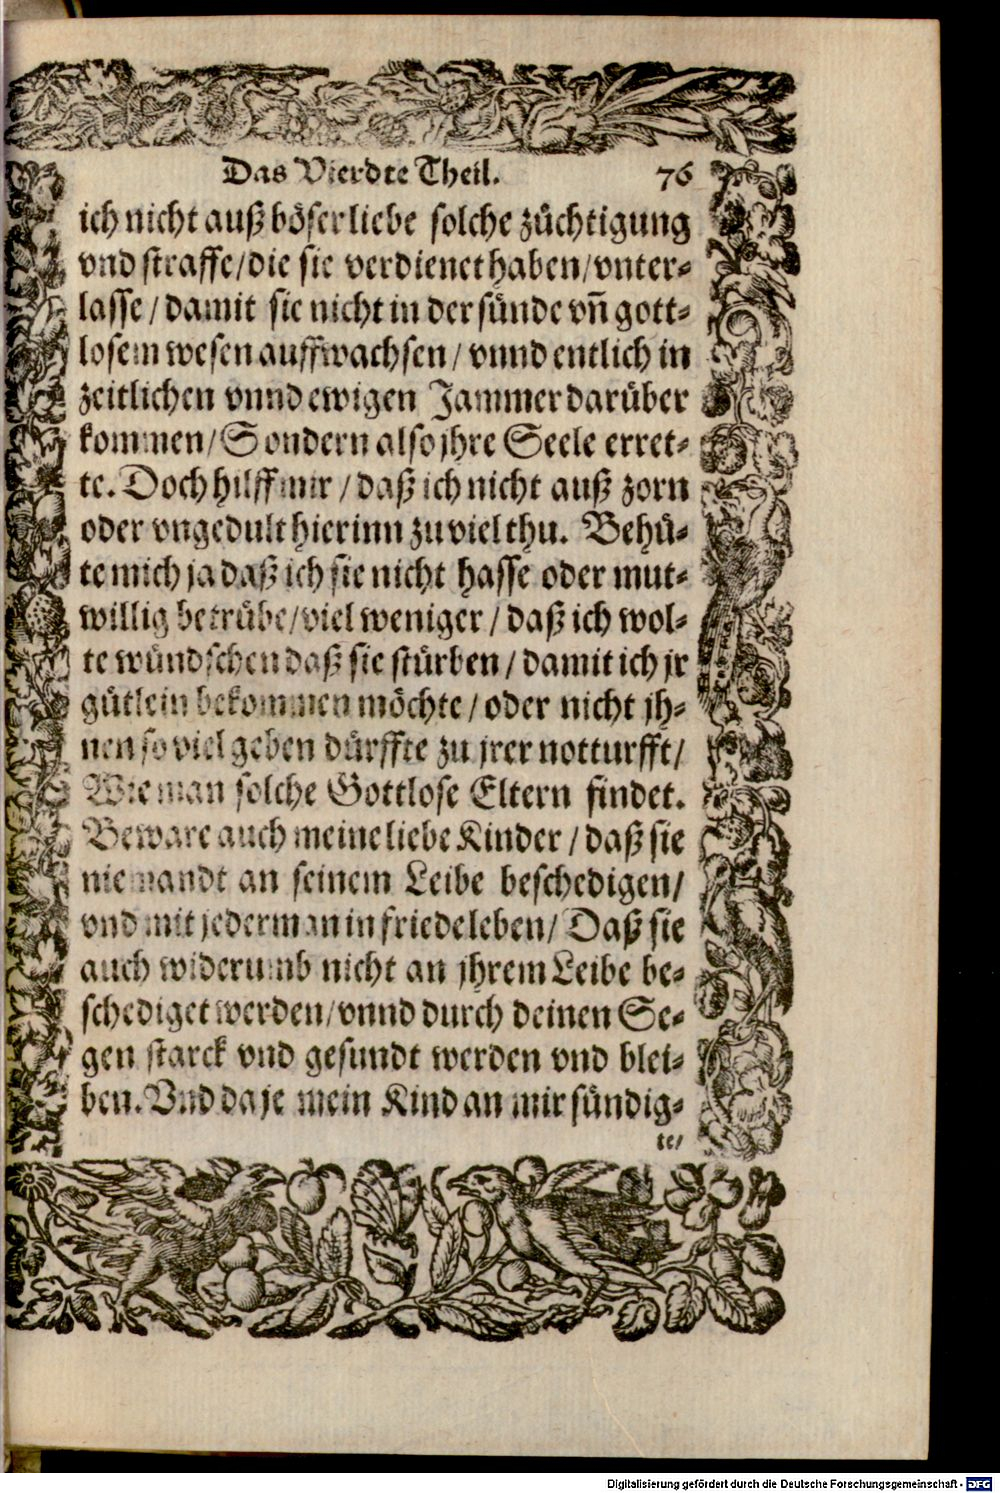 Das Vierdte Theil. 76
ich nicht auß böser liebe solche züchtigung
vnd straffe/die sie verdienet haben/vnter-
lasse / damit sie nicht in der sünde vñ gott-
losem wesen auffwachsen / vnnd entlich in
zeitlichen vnnd ewigen Jammer darüber
kommen/Sondern also jhre Seele erret-
te. Doch hilff mir / daß ich nicht auß zorn
oder vngedult hierinn zu viel thu. Behü-
te mich ja daß ich sie nicht hasse oder mut-
willig betrübe/viel weniger / daß ich wol-
te wündschen daß sie stürben / damit ich jr
gütlein bekommen möchte / oder nicht jh-
nen so viel geben dürffte zu jrer notturfft/
Wie man solche Gottlose Eltern findet.
Beware auch meine liebe Kinder / daß sie
niemandt an seinem Leibe beschedigen/
vnd mit jederman in friede leben/ Daß sie
auch widerumb nicht an jhrem Leibe be-
schediget werden/vnnd durch deinen Se-
gen starck vnd gesundt werden vnd blei-
ben. Vnd da je mein Kind an mir sündig-
te/
Digitalisierung gefördert durch die Deutsche Forschungsgemeinschaft - DFG